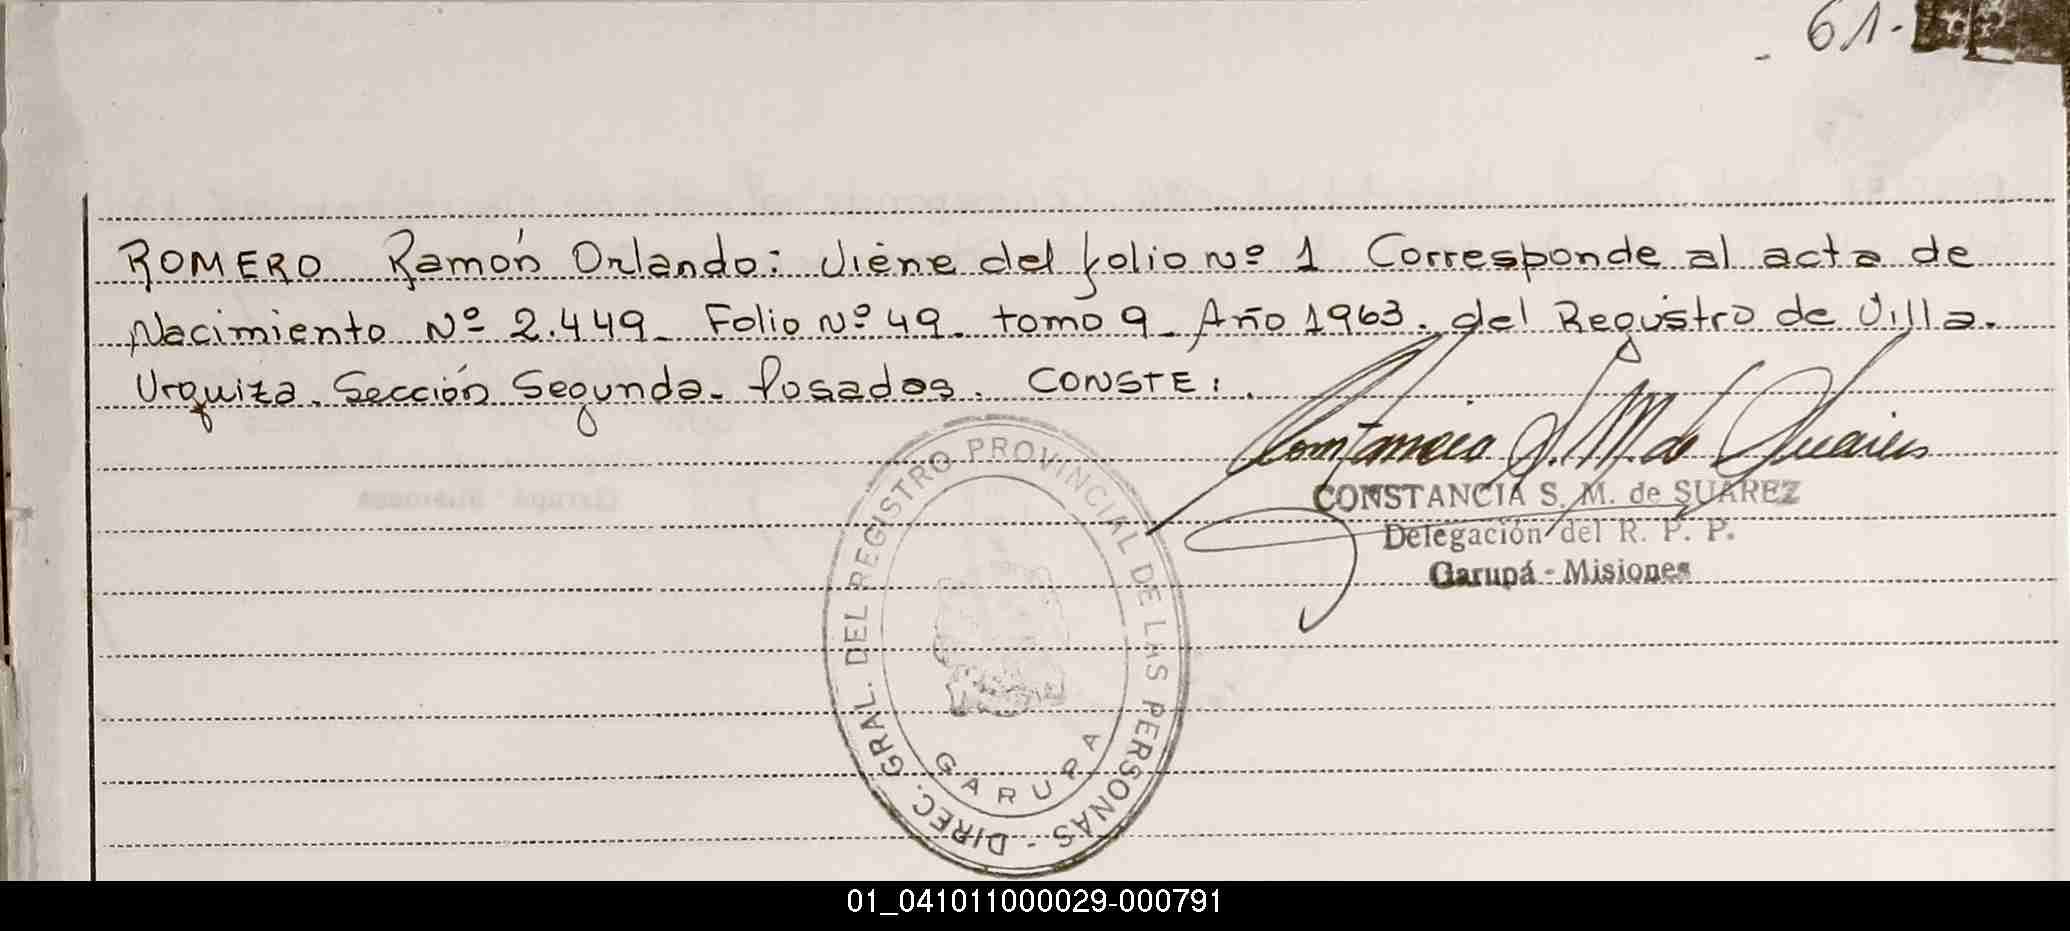 - 61.
ROMERO Ramón Orlando: Viene del folio Nº 1 Corresponde al acta de
Nacimiento Nº 2.449_ Folio Nº 49_ tomo 9_ Año 1963. del Registro de Villa.
Urquiza. Sección Segunda_ Posadas. CONSTE:.
Constancia S. M. de Suarez
CONSTANCIA S. M. de SUAREZ
Delegación del R. P. P.
Garupá - Misiones
DIREC. GRAL. DEL REGISTRO PROVINCIAL DE LAS PERSONAS -
GARUPA
01_041011000029-000791